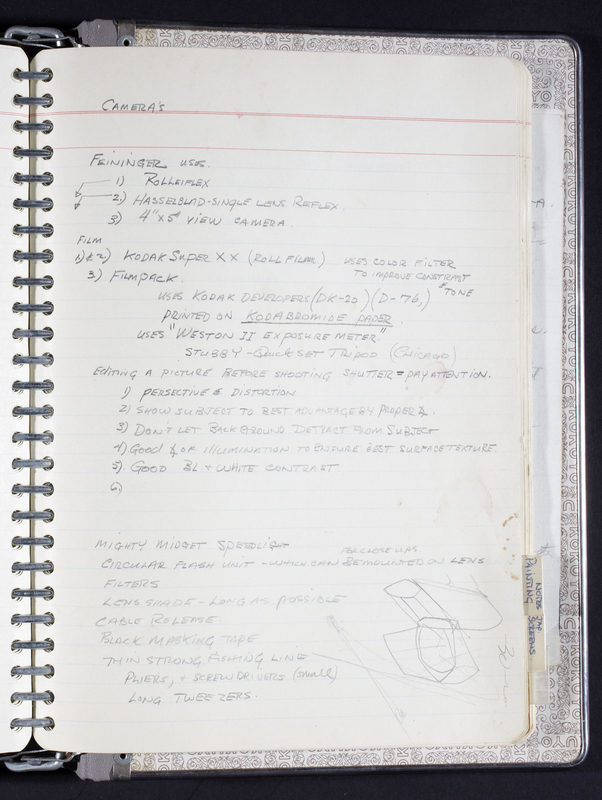 CAMERA'S
FEININGER USES.
1) ROLLEIFLEX
2) HASSELBLAD-SINGLE LENS REFLEX.
3) 4"x5" VIEW CAMERA.
FILM
1)&2) KODAK SUPER XX (ROLL FILM) USES COLOR FILTER
TO IMPROVE CONTRAST
& TONE
3) FILMPACK.
USES KODAK DEVELOPERS (DK-20) (D-76,)
PRINTED ON KODABROMIDE PAPER.
USES "WESTON II EXPOSURE METER."
STUBBY-QUICKSET TRIPOD (CHICAGO)
EDITING A PICTURE BEFORE SHOOTING SHUTTER = PAY ATTENTION.
1) PERSECTIVE & DISTORTION
2) SHOW SUBJECT TO BEST ADVANTAGE BY PROPER ∡.
3) DON'T LET BACKGROUND DETRACT FROM SUBJECT
4) GOOD ∡ OF ILLUMINATION TO ENSURE BEST SURFACE TEXTURE.
5) GOOD BL + WHITE CONTRAST
6)
MIGHTY MIDGET SPEEDLIGHT
FOR CLOSE UPS
CIRCULAR FLASH UNIT - WHICH CAN BE MOUNTED ON LENS
FILTERS
LENS SHADE - LONG AS POSSIBLE
CABLE RELEASE.
BLACK MASKING TAPE
THIN STRONG FISHING LINE
PLIERS, + SCREWDRIVERS (SMALL)
LONG TWEEZERS.
NOTES FOR
PAINTING SCREENS